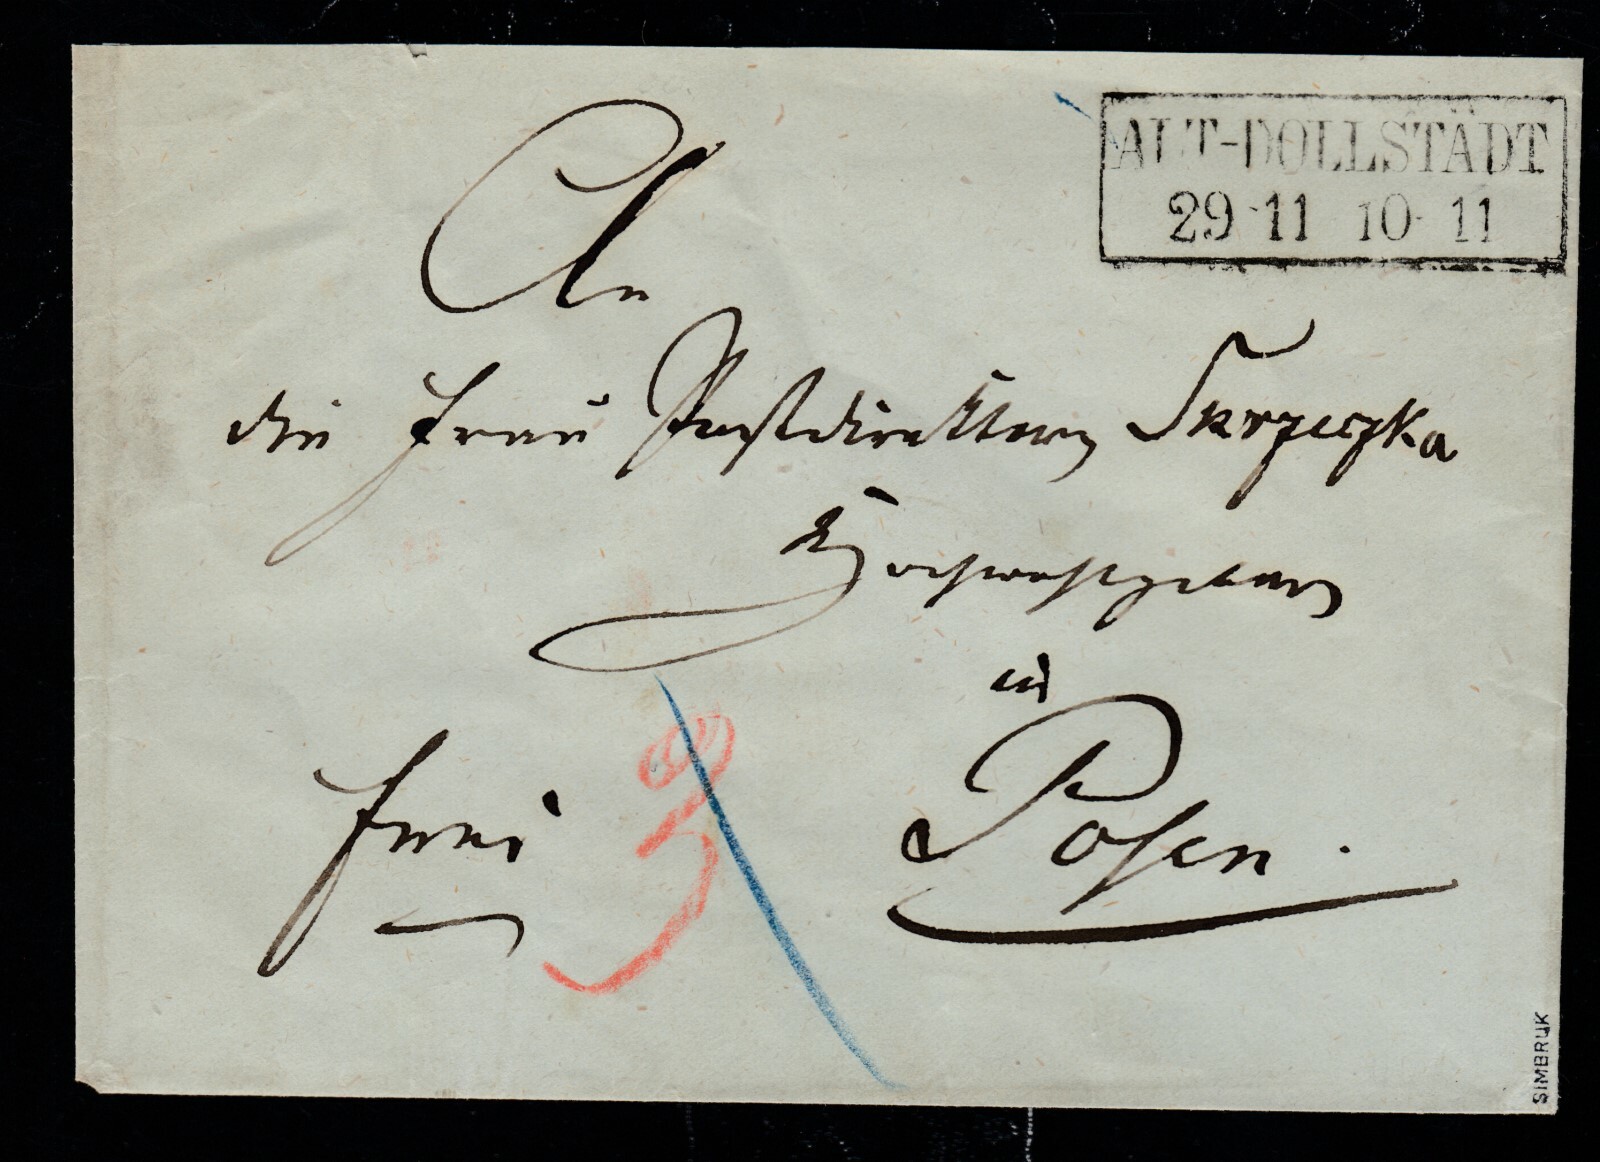 ALT-DOLLSTÄDT
29 11 10-11
An
die Frau Postdirektorn Skrzeczka
Hochwohlgeboren
in
Posen.
frei
3
SIMBRUK